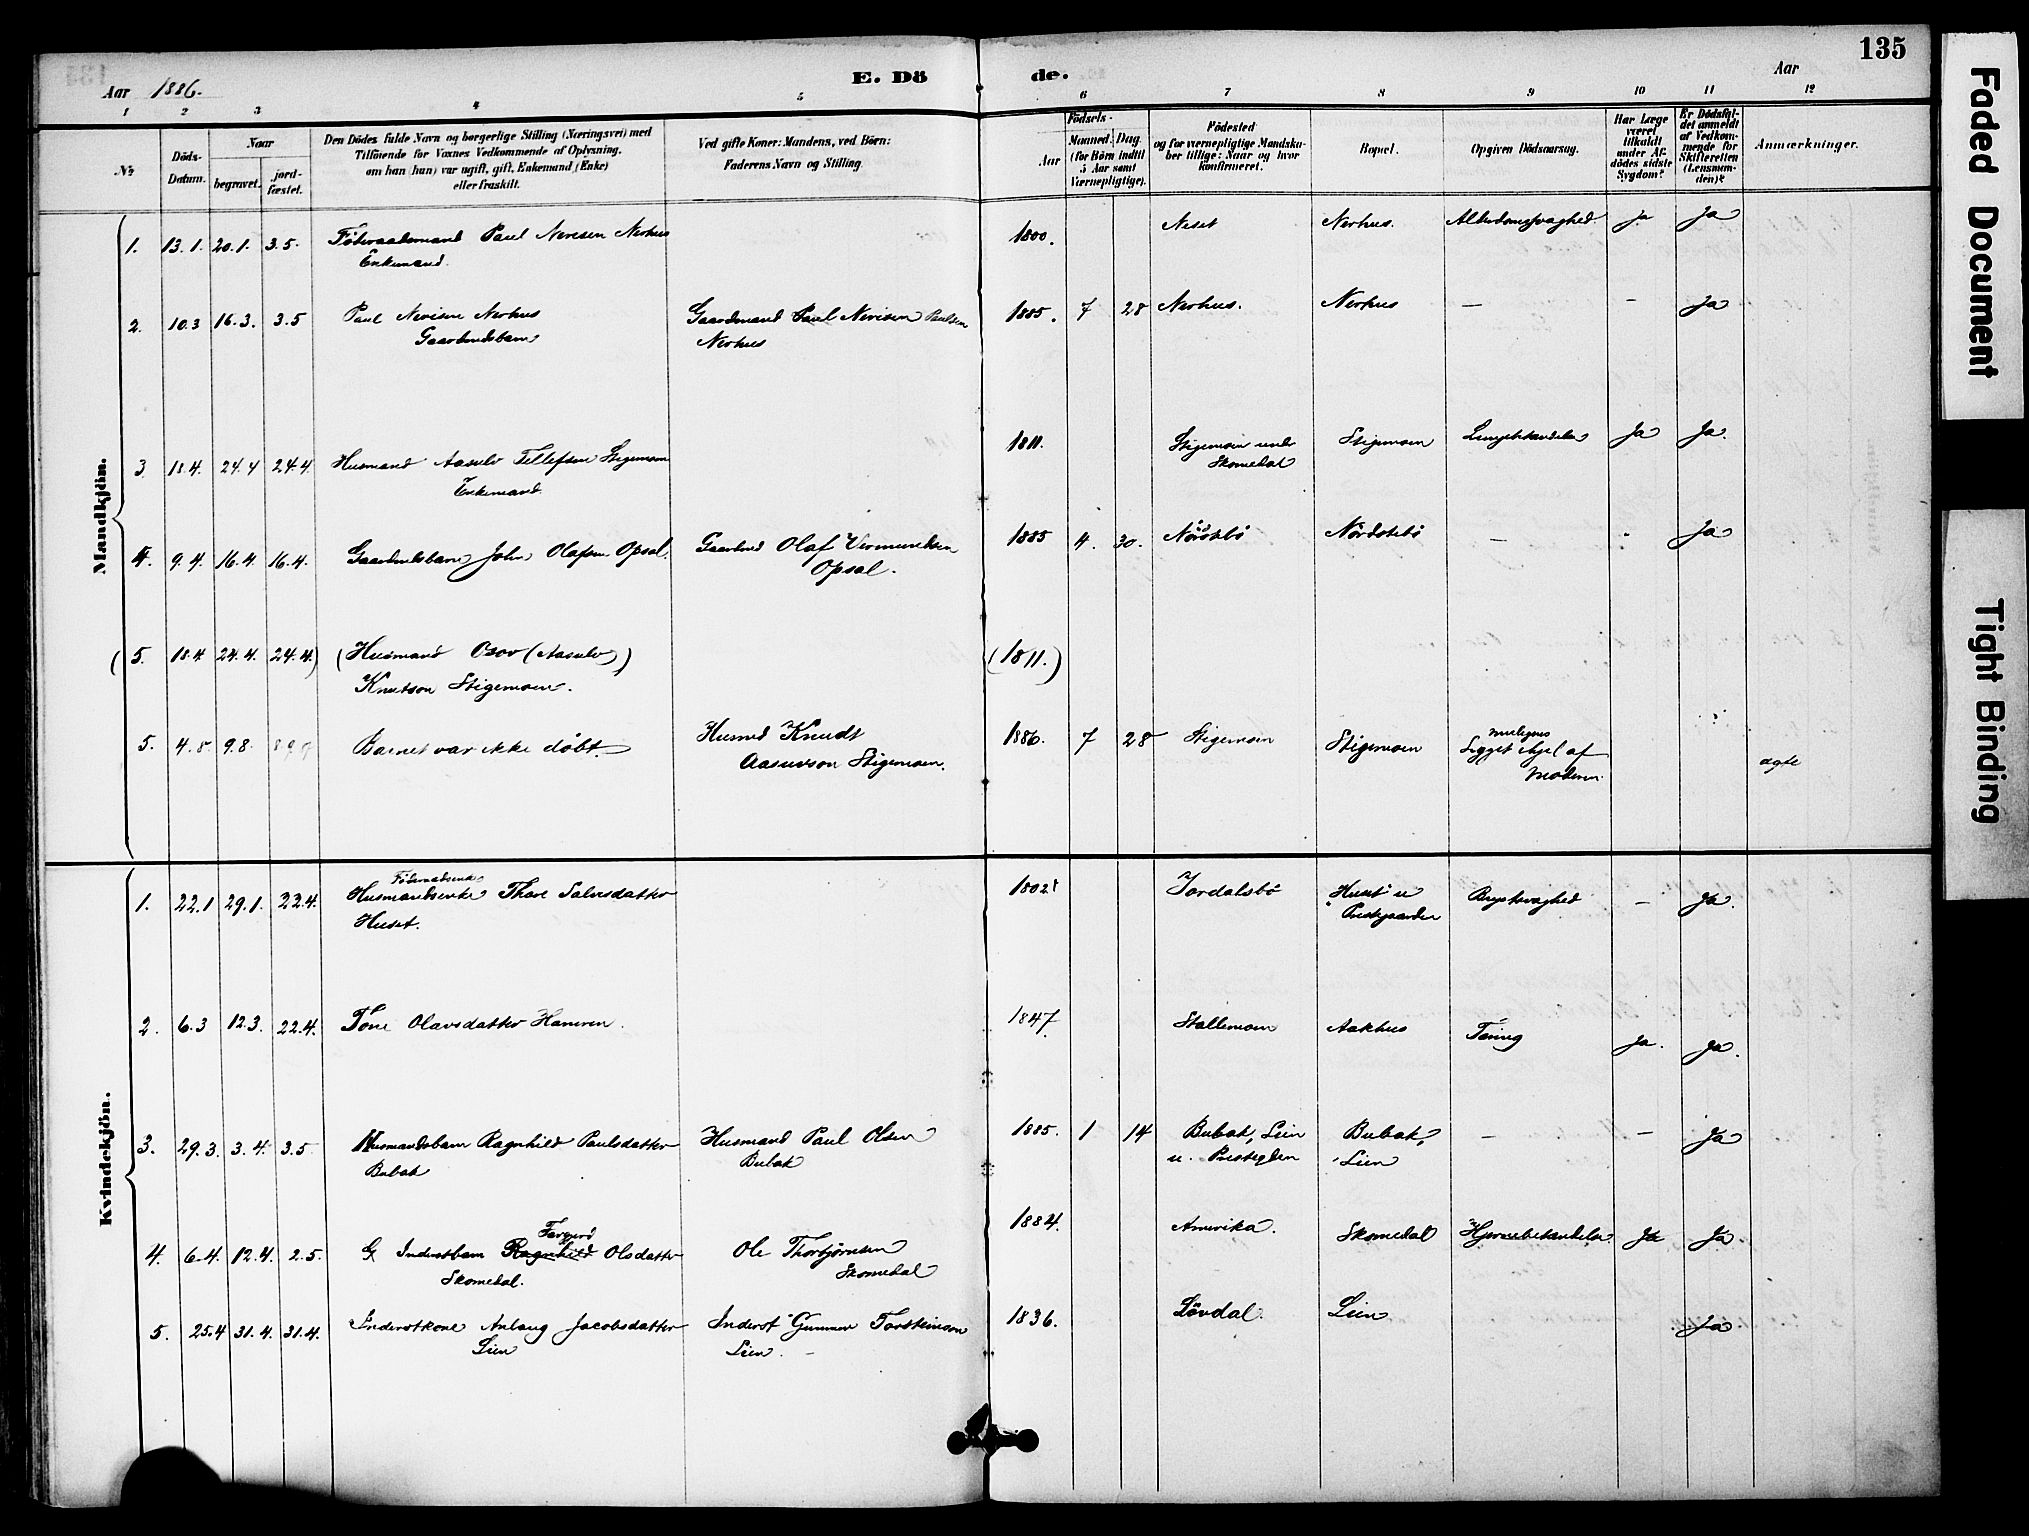 135
Aar 1886.
E. Dö de.
Aar
1 2 3 4 5 6 7 8 9 10 11 12
No
Döds-Datum.
Naar
begravet.
jord-fæstet.
Den Dödes fulde Navn og borgerlige Stilling (Næringsvei) med
Tilföiende for Voxnes Vedkommende af Oplysning,
om han (hun) var ugift, gift, Enkemand (Enke)
eller fraskilt.
Ved gifte Koner: Mandens, ved Börn:
Faderens Navn og Stilling.
Födsels-
Aar
Maaned. Dag.
(for Börn indtil
5 Aar samt
Værnepligtige).
Födested
og for værnepligtige Mandska-
ber tillige: Naar og hvor
konfirmeret.
Bopæl.
Opgiven Dödsaarsag.
Har Læge
været
tilkaldt
under Af-
dödes sidste
Sygdom?
Er Dödsfal-
det anmeldt
af Vedkom-
mende for
Skifteretten
(Lensman-
den)?
Anmærkninger.
Mandkjön.
1. 13.1. 20.1. 3.5. Föderaadsmand Paul Nerisen Nerhus 1800. Neset Nerhus. Alderdomssvaghed Ja Ja
Enkemand.
2. 10.3 16.3. 3.5 Paul Nerisen Nerhus Gaardmand Paul Nerisen Paulsen 1885. 7 28 Nerhus. Nerhus — – Ja
Gaardmdsbarn Nerhus
3 18.4. 24.4 24.4. Husmand Aasulv Tellefsen Stigemoen 1811. Stigemoen under Stigemoen Lungebetændelse Ja Ja.
Enkemand. Skomedal
4. 9.4. 16.4. 16.4. Gaardmdsbarn John Olafsen Opsal. Gaardmd Olaf Vermundsen 1885 4. 30. Nordstbö Nördstebö — Ja
Opsal.
(5. 18.4 24.4. 24.4.) (Husmand Osov (Aasulv)) (1811.)
Knutson Stigemoen.
5. 4.8 9.8. Barnet var ikke döbt. Husmd Knudt 1886. 7 28 Stigemoen Stigemoen muligens
Aasuvson Stigemoen. Ligget ihjel af
Moderen. ægte
Kvindekjön.
Föderaadsenke
1. 22.1 29.1. 22.4. Husmandsenke Thore Salvesdatter 1802 Jordalsbö Huset u Brystsvaghed – Ja.
Huset. Prestgaarden
2. 6.3 12.3. 22.4. Tone Olavsdatter Hameren. 1847 Stallemoen Aakhus Tæring Ja. Ja.
3. 29.3. 3.4. 3.5 Husmandsbarn Ragnhild Paulsdatter Husmand Paul Olsen 1885. 1 14 Bubak, Lien Bubak, – – Ja
Bubak Bubak u. Prestegden Lien
4. 6.4. 12.4. 2.5. Inderstbarn Ragnhild Olsdatter Ole Thorbjörnsen 1884. Amerika. Skomedal Hjernebetændelse Ja Ja
Skomedal. Skomedal
5. 25.4 31.4. 31.4. Inderstkone Anlaug Jacobsdatter Inderst Gunnar Torsteinson 1836. Lövdal. Lien Ja
Lien Lien.
Faded Document
Tight Binding